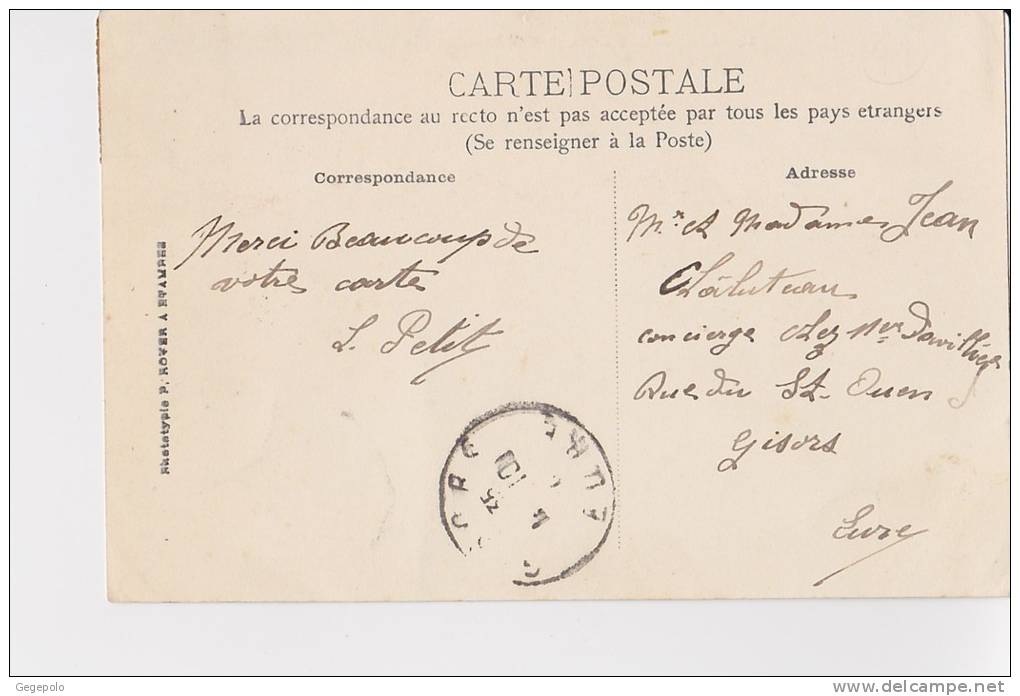 CARTE POSTALE
La correspondance au recto n'est pas acceptée par tous les pays etrangers
(Se renseigner à la Poste)
Correspondance
Merci Beaucoup de
votre carte
L. Petit
Adresse
Mr et Madame Jean
concierge chez Mer
Rue du St. Ouen
Gisors
Eure
Phototypie P. ROYER A ETAMPES
EURE
Gegepolo
www.delcampe.net